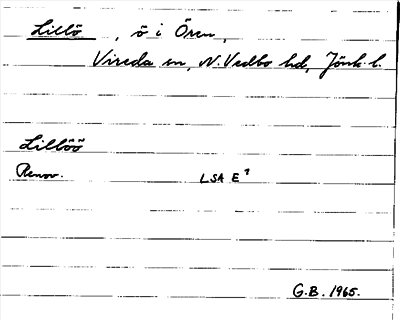 Lillö, ö i Ören,
Vireda sn, N. Vedbo hd, Jönk. l.
Lillöö
Renov. LSA E⁷
G.B. 1965.